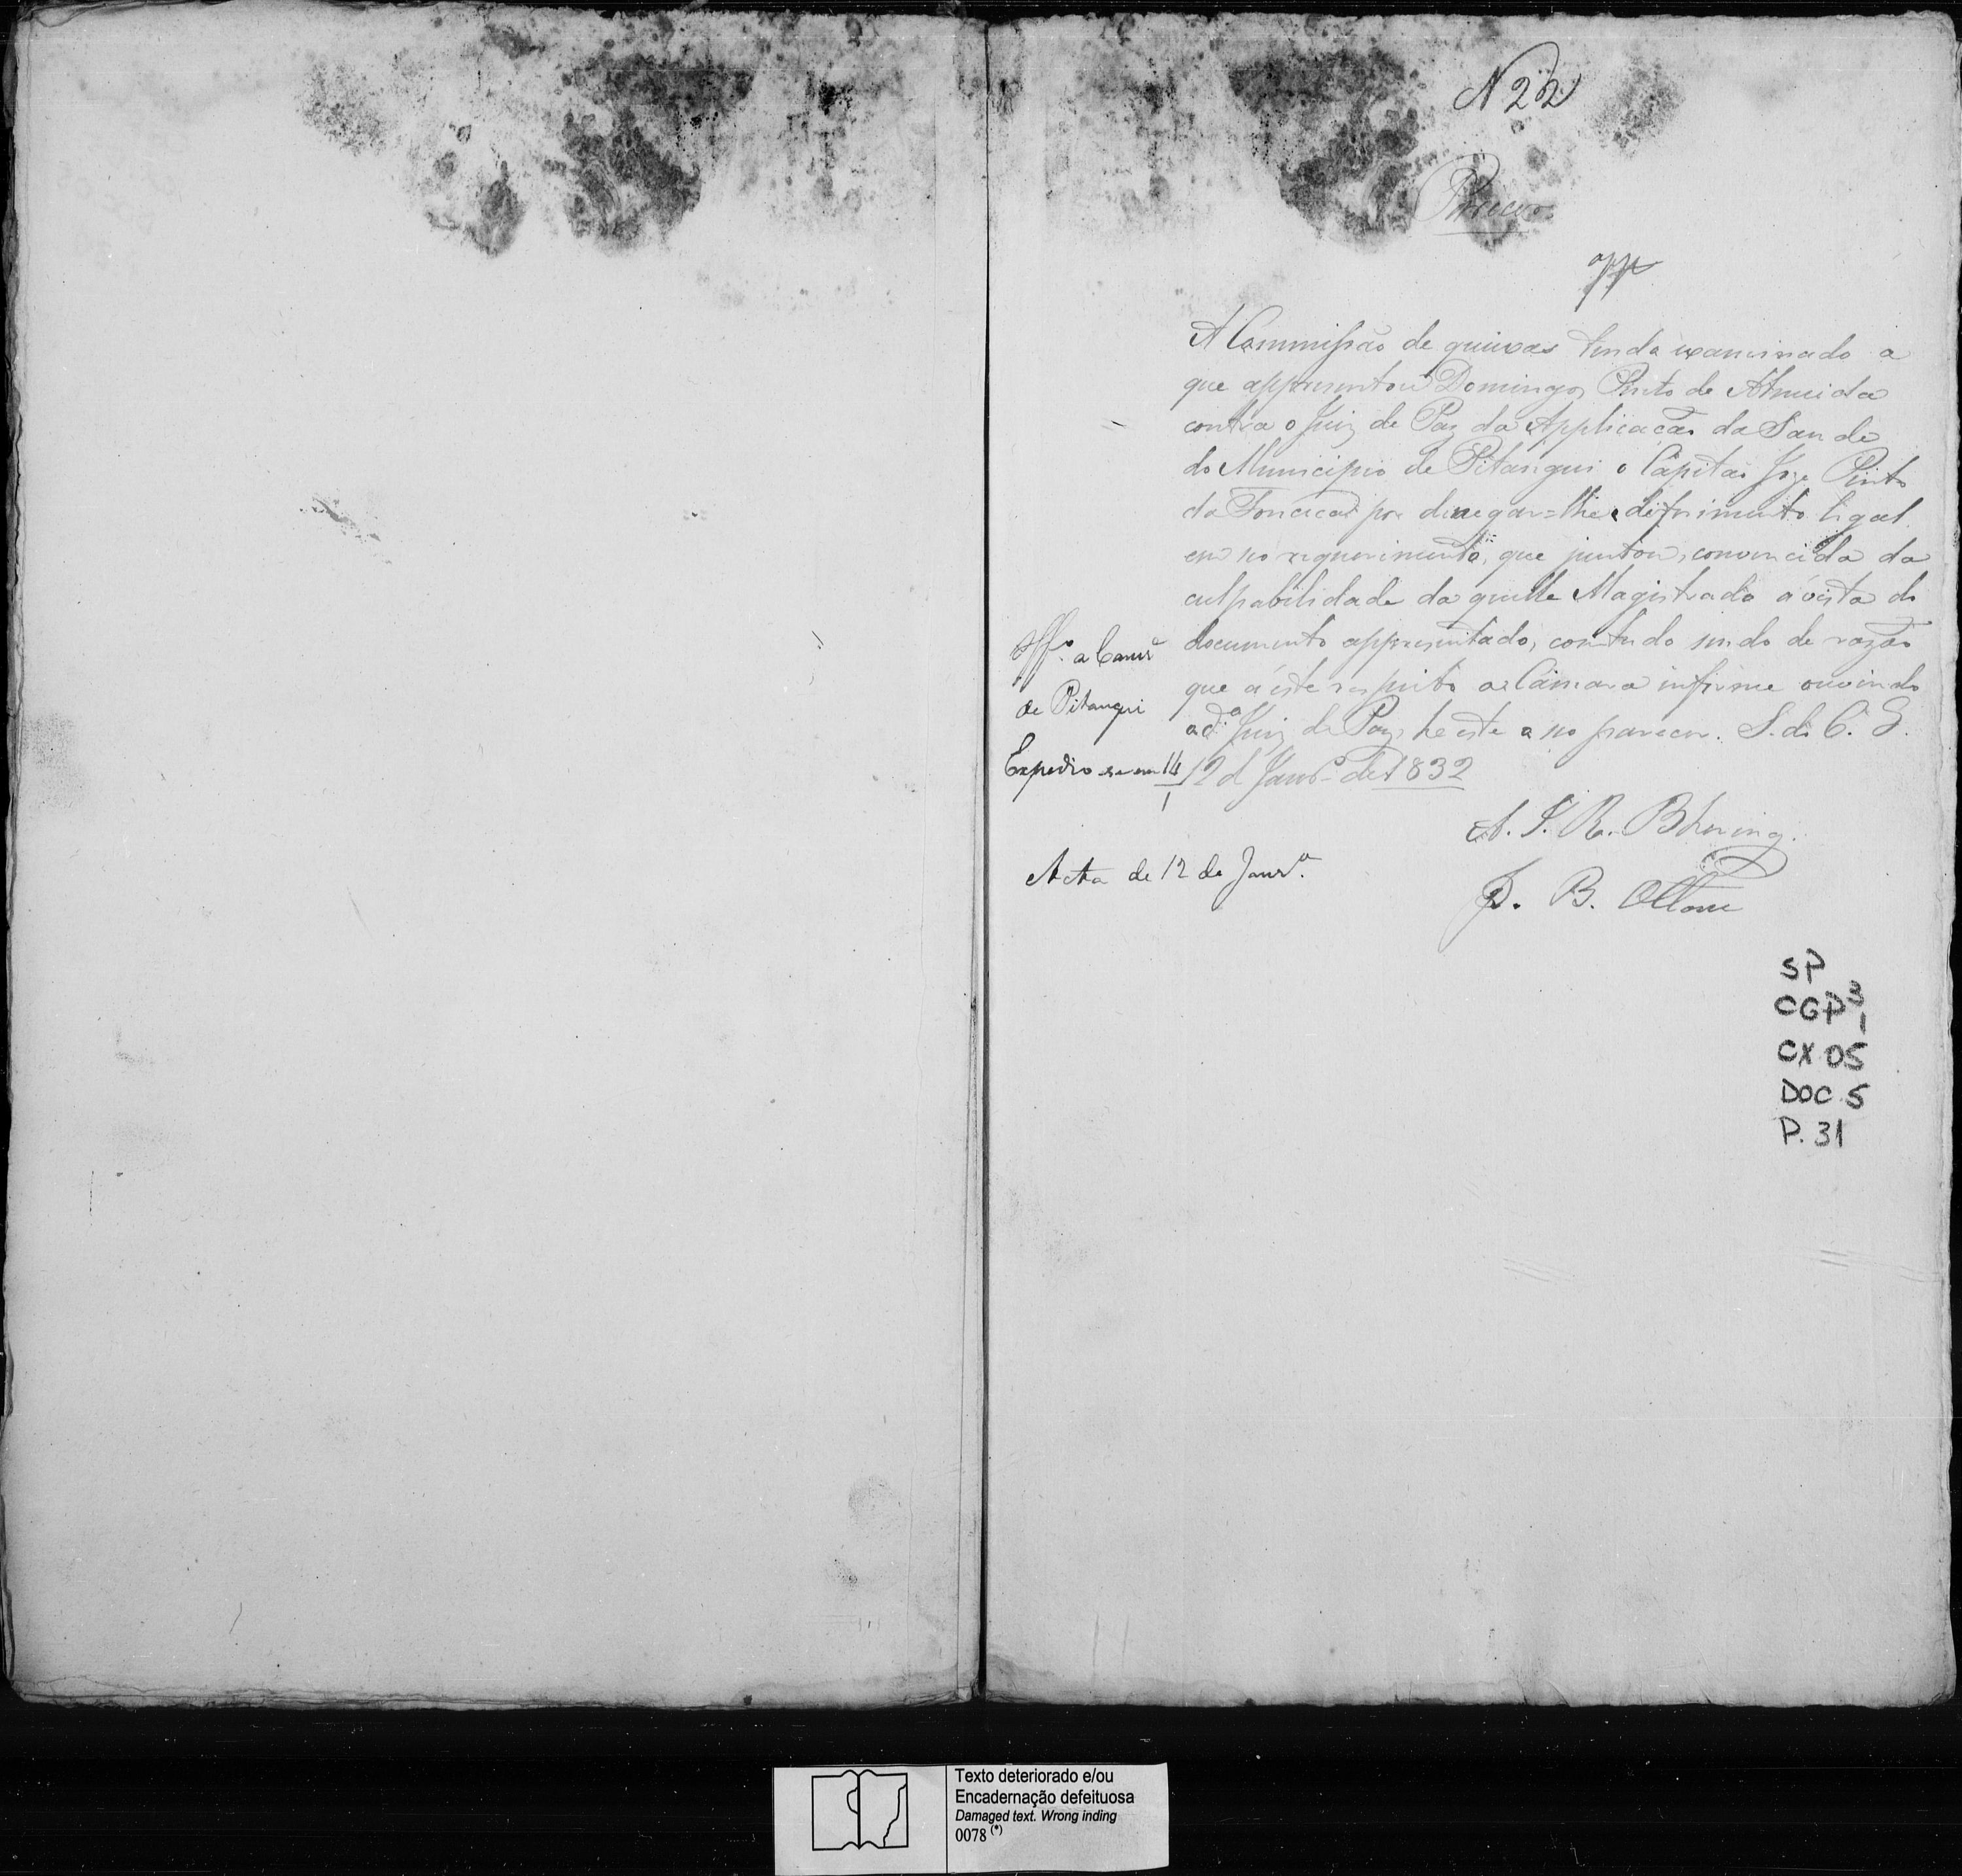 N 22
Parecer
app
A Commissão de queixas tendo examinado a
que appresentou Domingos Pinto de Almeida
contra o Juiz de Paz da Applicação da Saude
do Municipio de Pitangui o Capitão Joze Pinto
da Fonceca por denegar=lhe deferimento legal
em no requerimento, que juntou, convencida da
culpabilidade da quelle Magistrado á vista do
documento appresentado, comtudo sendo de razão
que á este respeito a Camara informe ouvindo
ao d.º Juiz de Paz, he este o no parecer. S. do C. G.
12 d Janr.º de 1832
A. J. R. Bhering.
J. B. Ottoni
Off.º a Camr.ª
de Pitangui
Expedio se em 14
1
Acta de 12 de Janr.º
SP
CGP 3
1
CX 05
DOC 5
P. 31
Texto deteriorado e/ou
Encadernação defeituosa
Damaged text. Wrong inding
0078 (*)